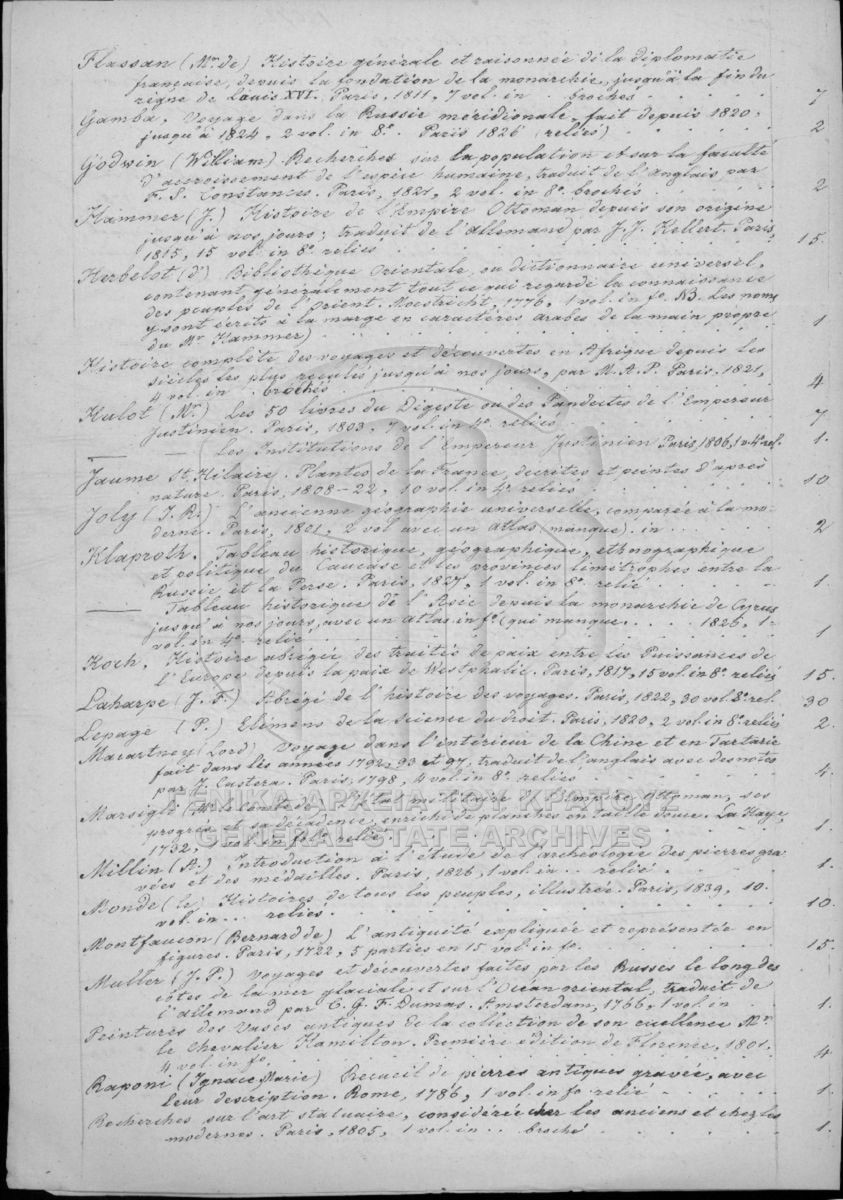 Flassan (Mr de) Histoire générale et raisonnée di la diplomatie
française, depuis la fondation de la monarchie, jusqu'à la fin du
règne de Louis XVI. Paris, 1811, 7 vol. in . brochés . . . . . 7
Gamba, Voyage dans la Russie méridionale, fait depuis 1820,
jusqu'à 1824, 2 vol. in 8º. Paris 1826 (reliés) . . . . . 2
Godwin (William) Recherches sur la population et sur la faculté
d'accroissement de l'espèce humaine, traduit de l'Anglais par
F. S. Constances. Paris, 1821, 2 vol. in 8º. brochés . . . . . 2
Hammer (J.) Histoire de l'Empire Ottoman depuis son origine
jusqu'à nos jours; traduit de l'allemand par J. J. Kellert. Paris,
1815, 15 vol. in 8º. reliés . . . . . 15.
Herbelot (d') Bibliothèque Orientale, ou dictionnaire universel,
contenant généralement tout ce qui regarde la connaissance
des peuples de l'Orient. Moestricht, 1776, 1 vol. in fº. NB. Les noms
y sont écrits à la marge en caractères arabes de la main propre
du Mr. Hammer) . . . . . 1
Histoire complète des voyages et découvertes en Afrique depuis les
siècles les plus reculés jusqu'à nos jours, par M. A. P. Paris. 1821,
4 vol. in . brochés . . . . . 4
Hulot (Mr.) Les 50 livres du Digeste ou des Pandectes de l'Empereur
Justinien. Paris, 1803, 7 vol. in 4º. reliés . . . . . 7
— — Les Institutions de l'Empereur Justinien Paris, 1806, 1 v. 4º rel. 1.
Jaume St. Hilaire. Plantes de la France, décrites et peintes d'après
nature. Paris, 1808–22, 10 vol. in 4º. reliés . . . . . 10
Joly (J. R.) L'ancienne géographie universelle, comparée à la mo-
derne. Paris, 1801, 2 vol avec un atlas (manque) in . . . . . 2
Klaproth. Tableau historique, géographique, ethnographique
et politique du Caucase et les provinces limitrophes entre la
Russie et la Perse. Paris, 1827, 1 vol. in 8º. relié . . . . . 1.
—— Tableau historique de l'Asie depuis la monarchie de Cyrus
jusqu'à nos jours, avec un atlas in fº (qui manque . . . . . 1826, 1
vol. in 4º. relié . . . . . 1
Koch, Histoire abrégée des traités de paix entre les Puissances de
l'Europe depuis la paix de Westphalie. Paris, 1817, 15 vol. in 8º. reliés 15.
Laharpe (J. F.) Abrégé de l'histoire des voyages. Paris, 1822, 30 vol. 8º. rel. 30
Lepage (P.) Elémens de la science du droit. Paris, 1820, 2 vol. in 8º. reliés 2.
Macartney (Lord) Voyage dans l'intérieur de la Chine et en Tartarie
fait dans les années 1792, 93 et 97, traduit de l'anglais avec des notes
par J. Castera. Paris, 1798, 4 vol. in 8º. reliés . . . . . 4.
Marsigli de l'état militaire de l'Empire Ottoman, ses
progrès et sa décadence, enrichi de planches en taille douce. La Haye,
1732, vol. in folº relié . . . . . 1.
Millin (A.) Introduction à l'étude de l'archéologie des pierres gra-
vées et des médailles. Paris, 1826, 1 vol. in . . relié . . . . . 1.
Monde (le) Histoires de tous les peuples, illustrée. Paris, 1839, 10.
vol. in . . . reliés . . . . . 10.
Montfaucon (Bernard de) L'antiquité expliquée et représentée en
figures. Paris, 1722, 5 parties en 15 vol. in fº. . . . . . 15.
Muller (J. P.) Voyages et découvertes faites par les Russes le long des
côtes de la mer glaciale et sur l'Océan oriental, traduit de
l'allemand par C. G. F. Dumas. Amsterdam, 1766, 1 vol. in . . . . . 1.
Peintures des Vases antiques de la collection de son excellence Mr.
le Chevalier Hamilton. Première édition de Florence, 1801,
4 vol. in fº. . . . . . 4
Raponi (Ignace Marie) Recueil de pierres antiques gravée, avec
leur description. Rome, 1786, 1 vol. in fº relié . . . . . 1.
Recherches sur l'art statuaire, considérée chez les anciens et chez les
modernes. Paris, 1805, 1 vol. in . . broché . . . . . 1.
ΓΕΝΙΚΑ ΑΡΧΕΙΑ ΤΟΥ ΚΡΑΤΟΥΣ
GENERAL STATE ARCHIVES